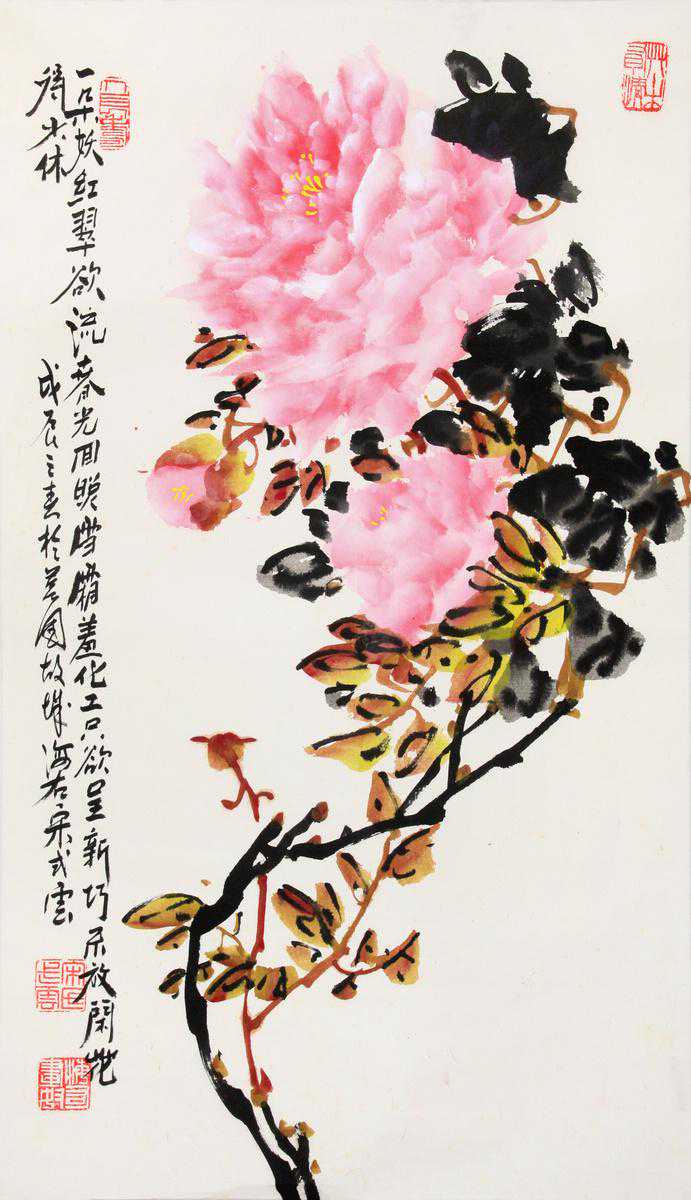 一朵妖紅翠欲流春光回照雪霜羞化工只欲呈新巧不放閑花
得少休
戊辰之春於莒國故城海右宋式雲